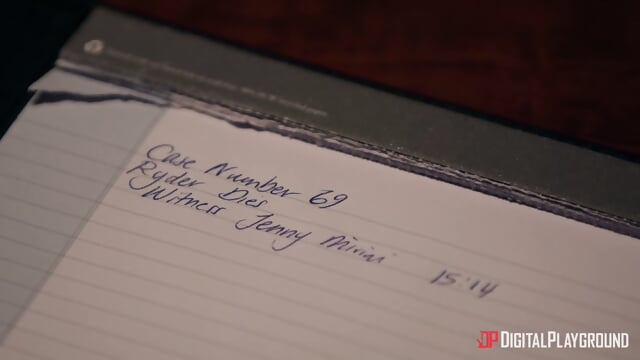 Case Number 69
Ryder Dies
Witness Jenny
15:14
DIGITALPLAYGROUND